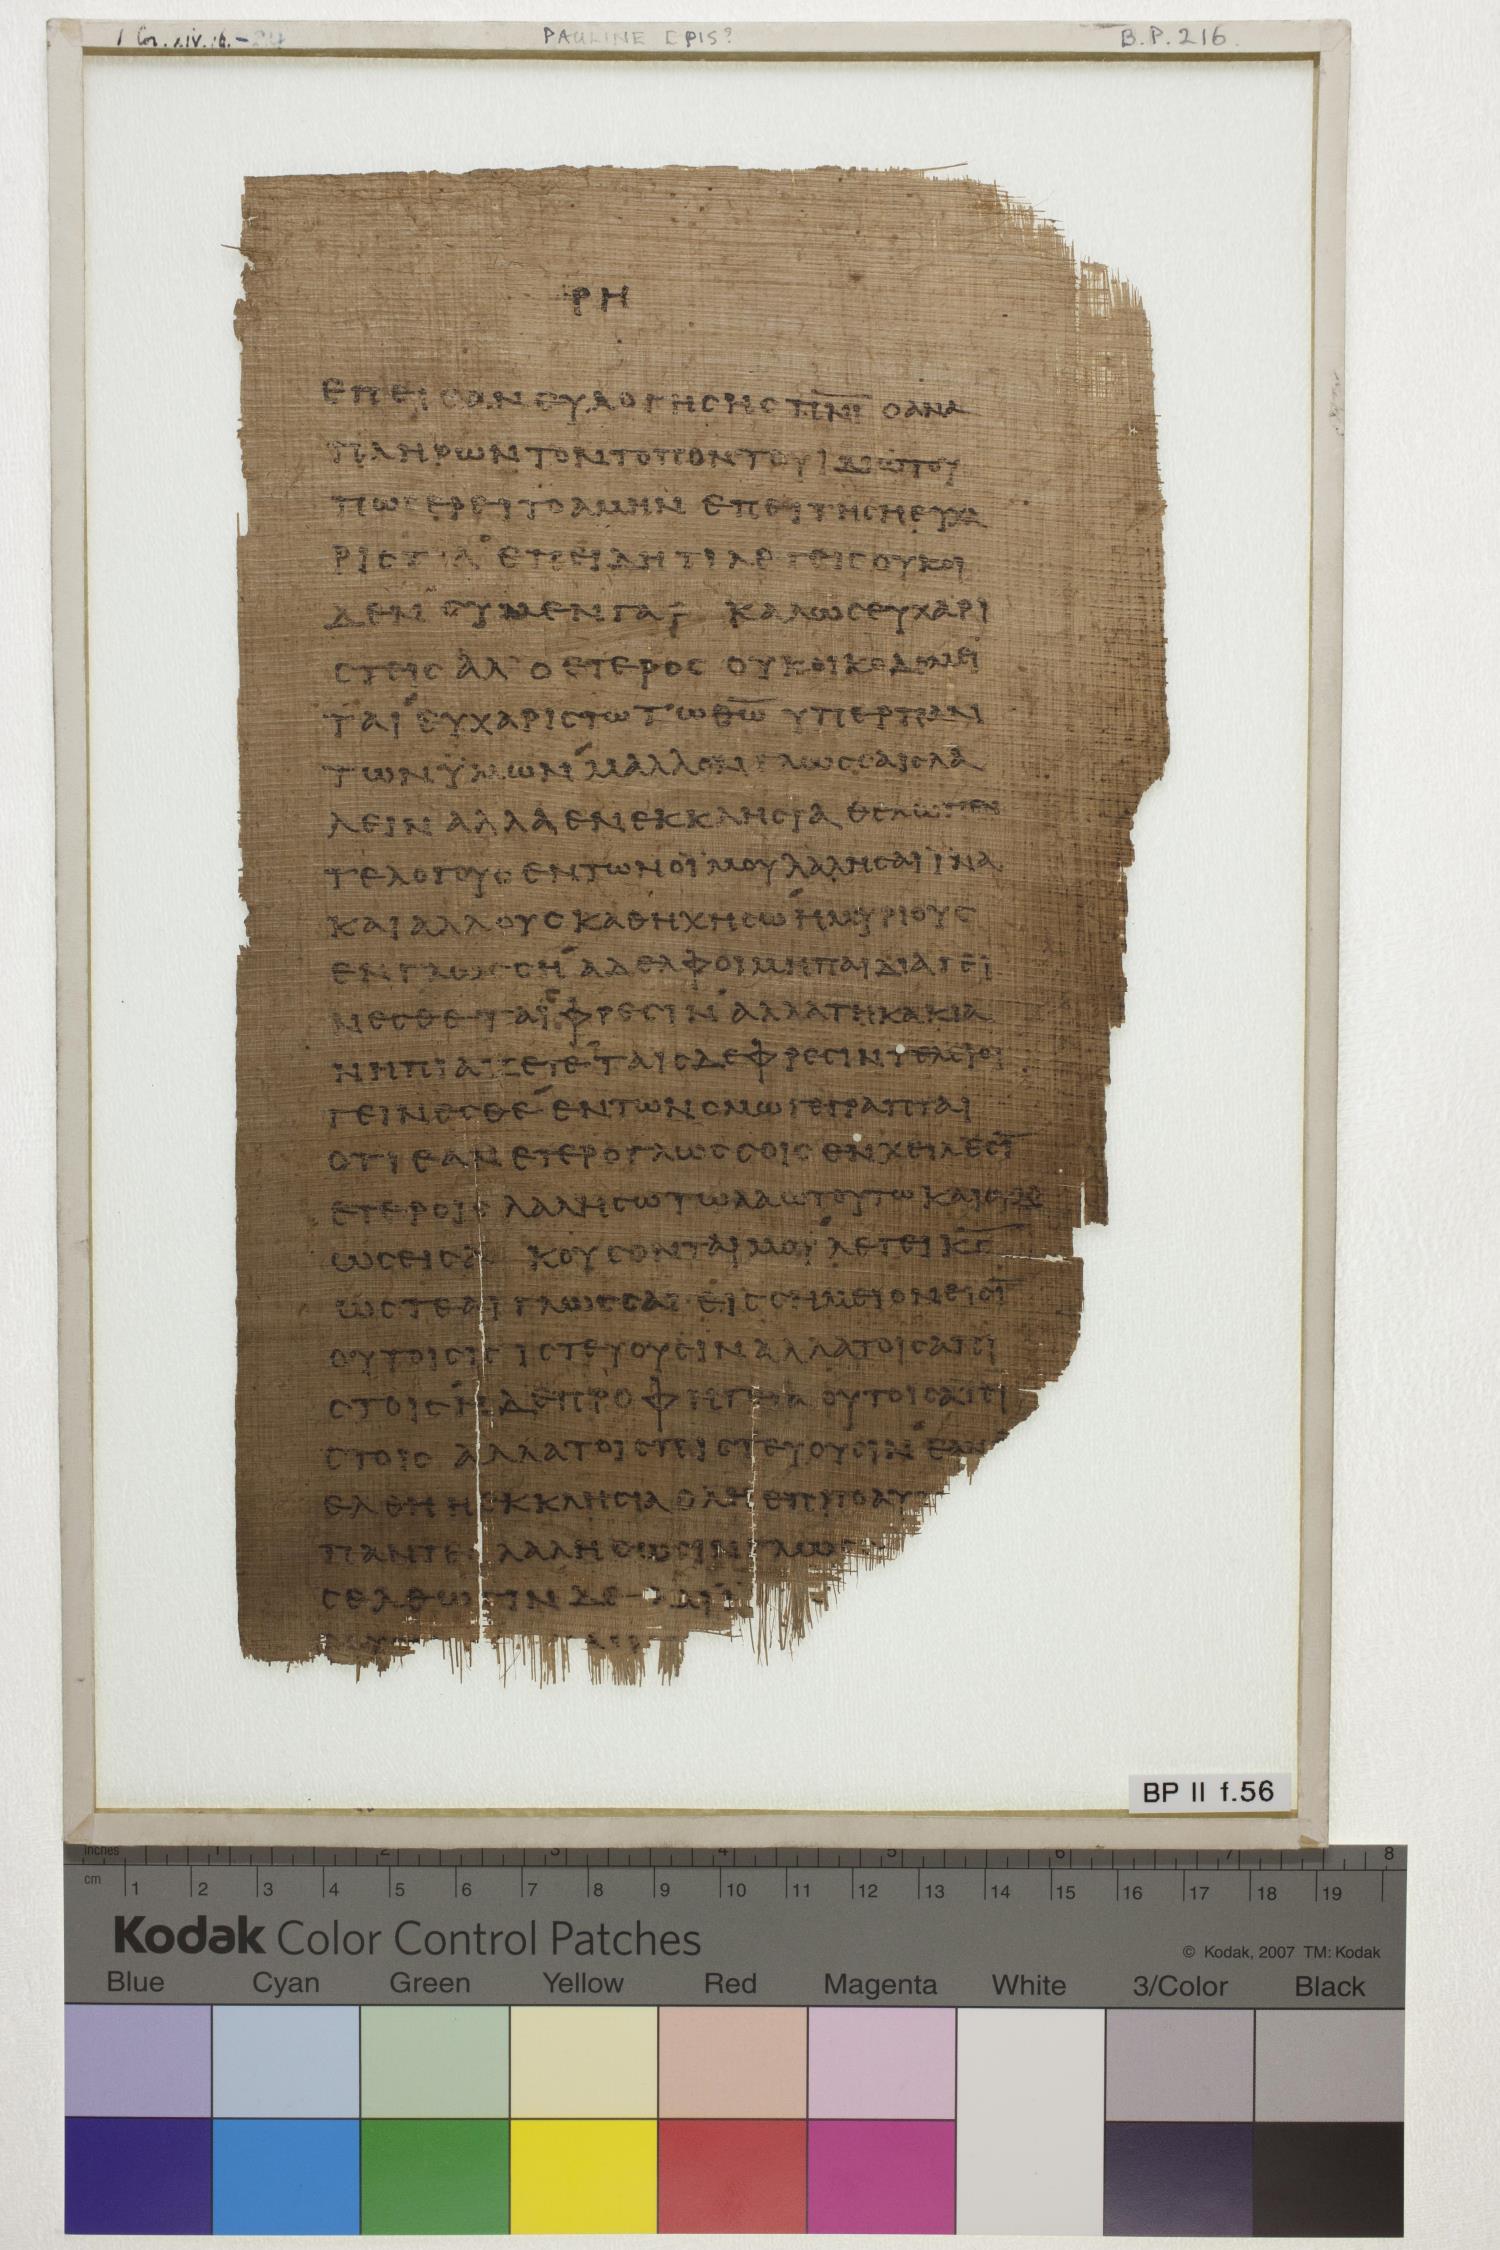 1 Cor. xiv. 16. - 24
PAULINE EPIS?
B.P. 216.
ΡΗ
ΕΠΕΙ ΕΑΝ ΕΥΛΟΓΗСΗС Π̅Ν̅Ι̅ Ο ΑΝΑ
ΠΛΗΡΩΝ ΤΟΝ ΤΟΠΟΝ ΤΟΥ ΙΔΙΩΤΟΥ
ΠΩС ΕΡΕΙ ΤΟ ΑΜΗΝ ΕΠΕΙ ΤΗ СΗ ΕΥΧΑ
ΛΕΓΕΙС ΟΥΚ ΟΙ
ΔΕΝ СΥ ΜΕΝ ΓΑΡ ΚΑΛΩС ΕΥΧΑΡΙ
СΤΕΙС ΑΛ Ο ΕΤΕΡΟС ΟΥΚ ΟΙΚΟΔΟΜΕΙ
ΤΑΙ ΕΥΧΑΡΙСΤΩ ΤΩ Θ̅Ω̅ ΥΠΕΡ ΠΑΝ
ΤΩΝ ΫΜΩΝ ΜΑΛΛΟΝ ΓΛΩССΑΙС ΛΑ
ΛΕΙΝ ΑΛΛΑ ΕΝ ΕΚΚΛΗСΙΑ ΘΕΛΩ ΠΕΝ
ΤΕ ΛΟΓΟΥС ΕΝ ΤΩ ΝΟΪ ΜΟΥ ΛΑΛΗСΑΙ ΪΝΑ
ΚΑΙ ΑΛΛΟΥС ΚΑΘΗΧΗСΩ Η ΜΥΡΙΟΥС
ΕΝ ΓΛΩССΗ ΑΔΕΛΦΟΙ ΜΗ ΠΑΙΔΙΑ ΓΕΙ
ΝΕСΘΕ ΤΑΙС ΦΡΕСΙΝ ΑΛΛΑ ΤΗ ΚΑΚΙΑ
ΝΗΠΙΑΖΕΤΕ ΤΑΙС ΔΕ ΦΡΕСΙΝ ΤΕΛΕΙΟΙ
ΓΕΙΝΕСΘΕ ΕΝ ΤΩ ΝΟΜΩ ΓΕΓΡΑΠΤΑΙ
ΟΤΙ ΕΑΝ ΕΤΕΡΟΓΛΩССΟΙС ΕΝ ΧΕΙΛΕСΙ̅
ΕΤΕΡΟΙС ΛΑΛΗСΩ ΤΩ ΛΑΩ ΤΟΥΤΩ ΚΑΙ ΟΥΔΕ
ΩС ΕΙСΑΚΟΥСΟΝΤΑΙ ΜΟΥ ΛΕΓΕΙ Κ̅С̅
ΩСΤΕ ΑΙ ΓΛΩССΑΙ ΕΙС СΗΜΕΙΟΝ ΕΙСΙ̅
ΟΥ ΤΟΙС ΠΙСΤΕΥΟΥСΙΝ ΑΛΛΑ ΤΟΙС ΑΠΙ
СΤΟΙС Η ΔΕ ΠΡΟΦΗΤΕΙΑ ΟΥ ΤΟΙС ΑΠΙ
СΤΟΙС ΑΛΛΑ ΤΟΙС ΠΕΙСΤΕΥΟΥСΙΝ ΕΑΝ
ΕΛΘΗ Η ΕΚΚΛΗСΙΑ ΟΛΗ ΕΠΙ ΤΟ ΑΥΤ
ΠΑΝΤΕС ΛΑΛΗСΩСΙΝ ΓΛΩС
СΕΛΘΩСΙΝ ΔΕ
BP II f.56
inches 1 2 3 4 5 6 7 8
cm 1 2 3 4 5 6 7 8 9 10 11 12 13 14 15 16 17 18 19
Kodak Color Control Patches
© Kodak, 2007 TM: Kodak
Blue Cyan Green Yellow Red Magenta White 3/Color Black